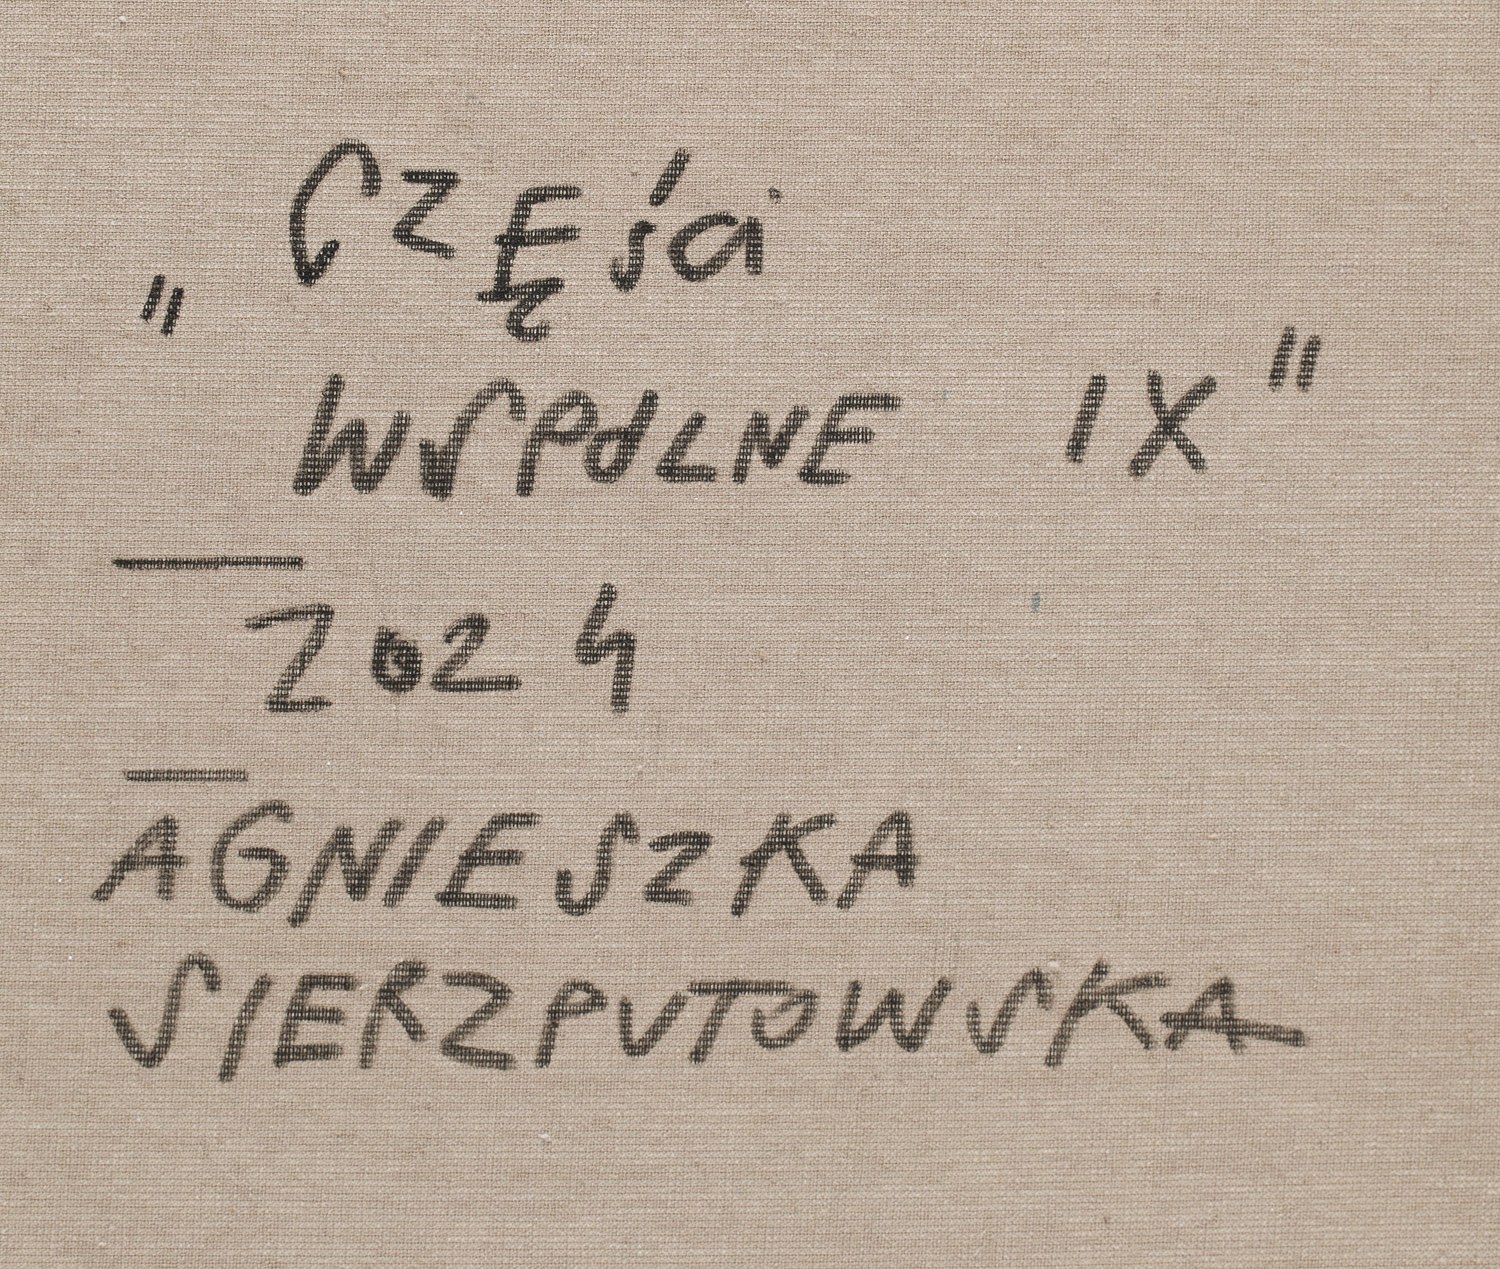 „CZĘŚCI
WSPÓLNE IX"
2024
AGNIESZKA
SIERZPUTOWSKA